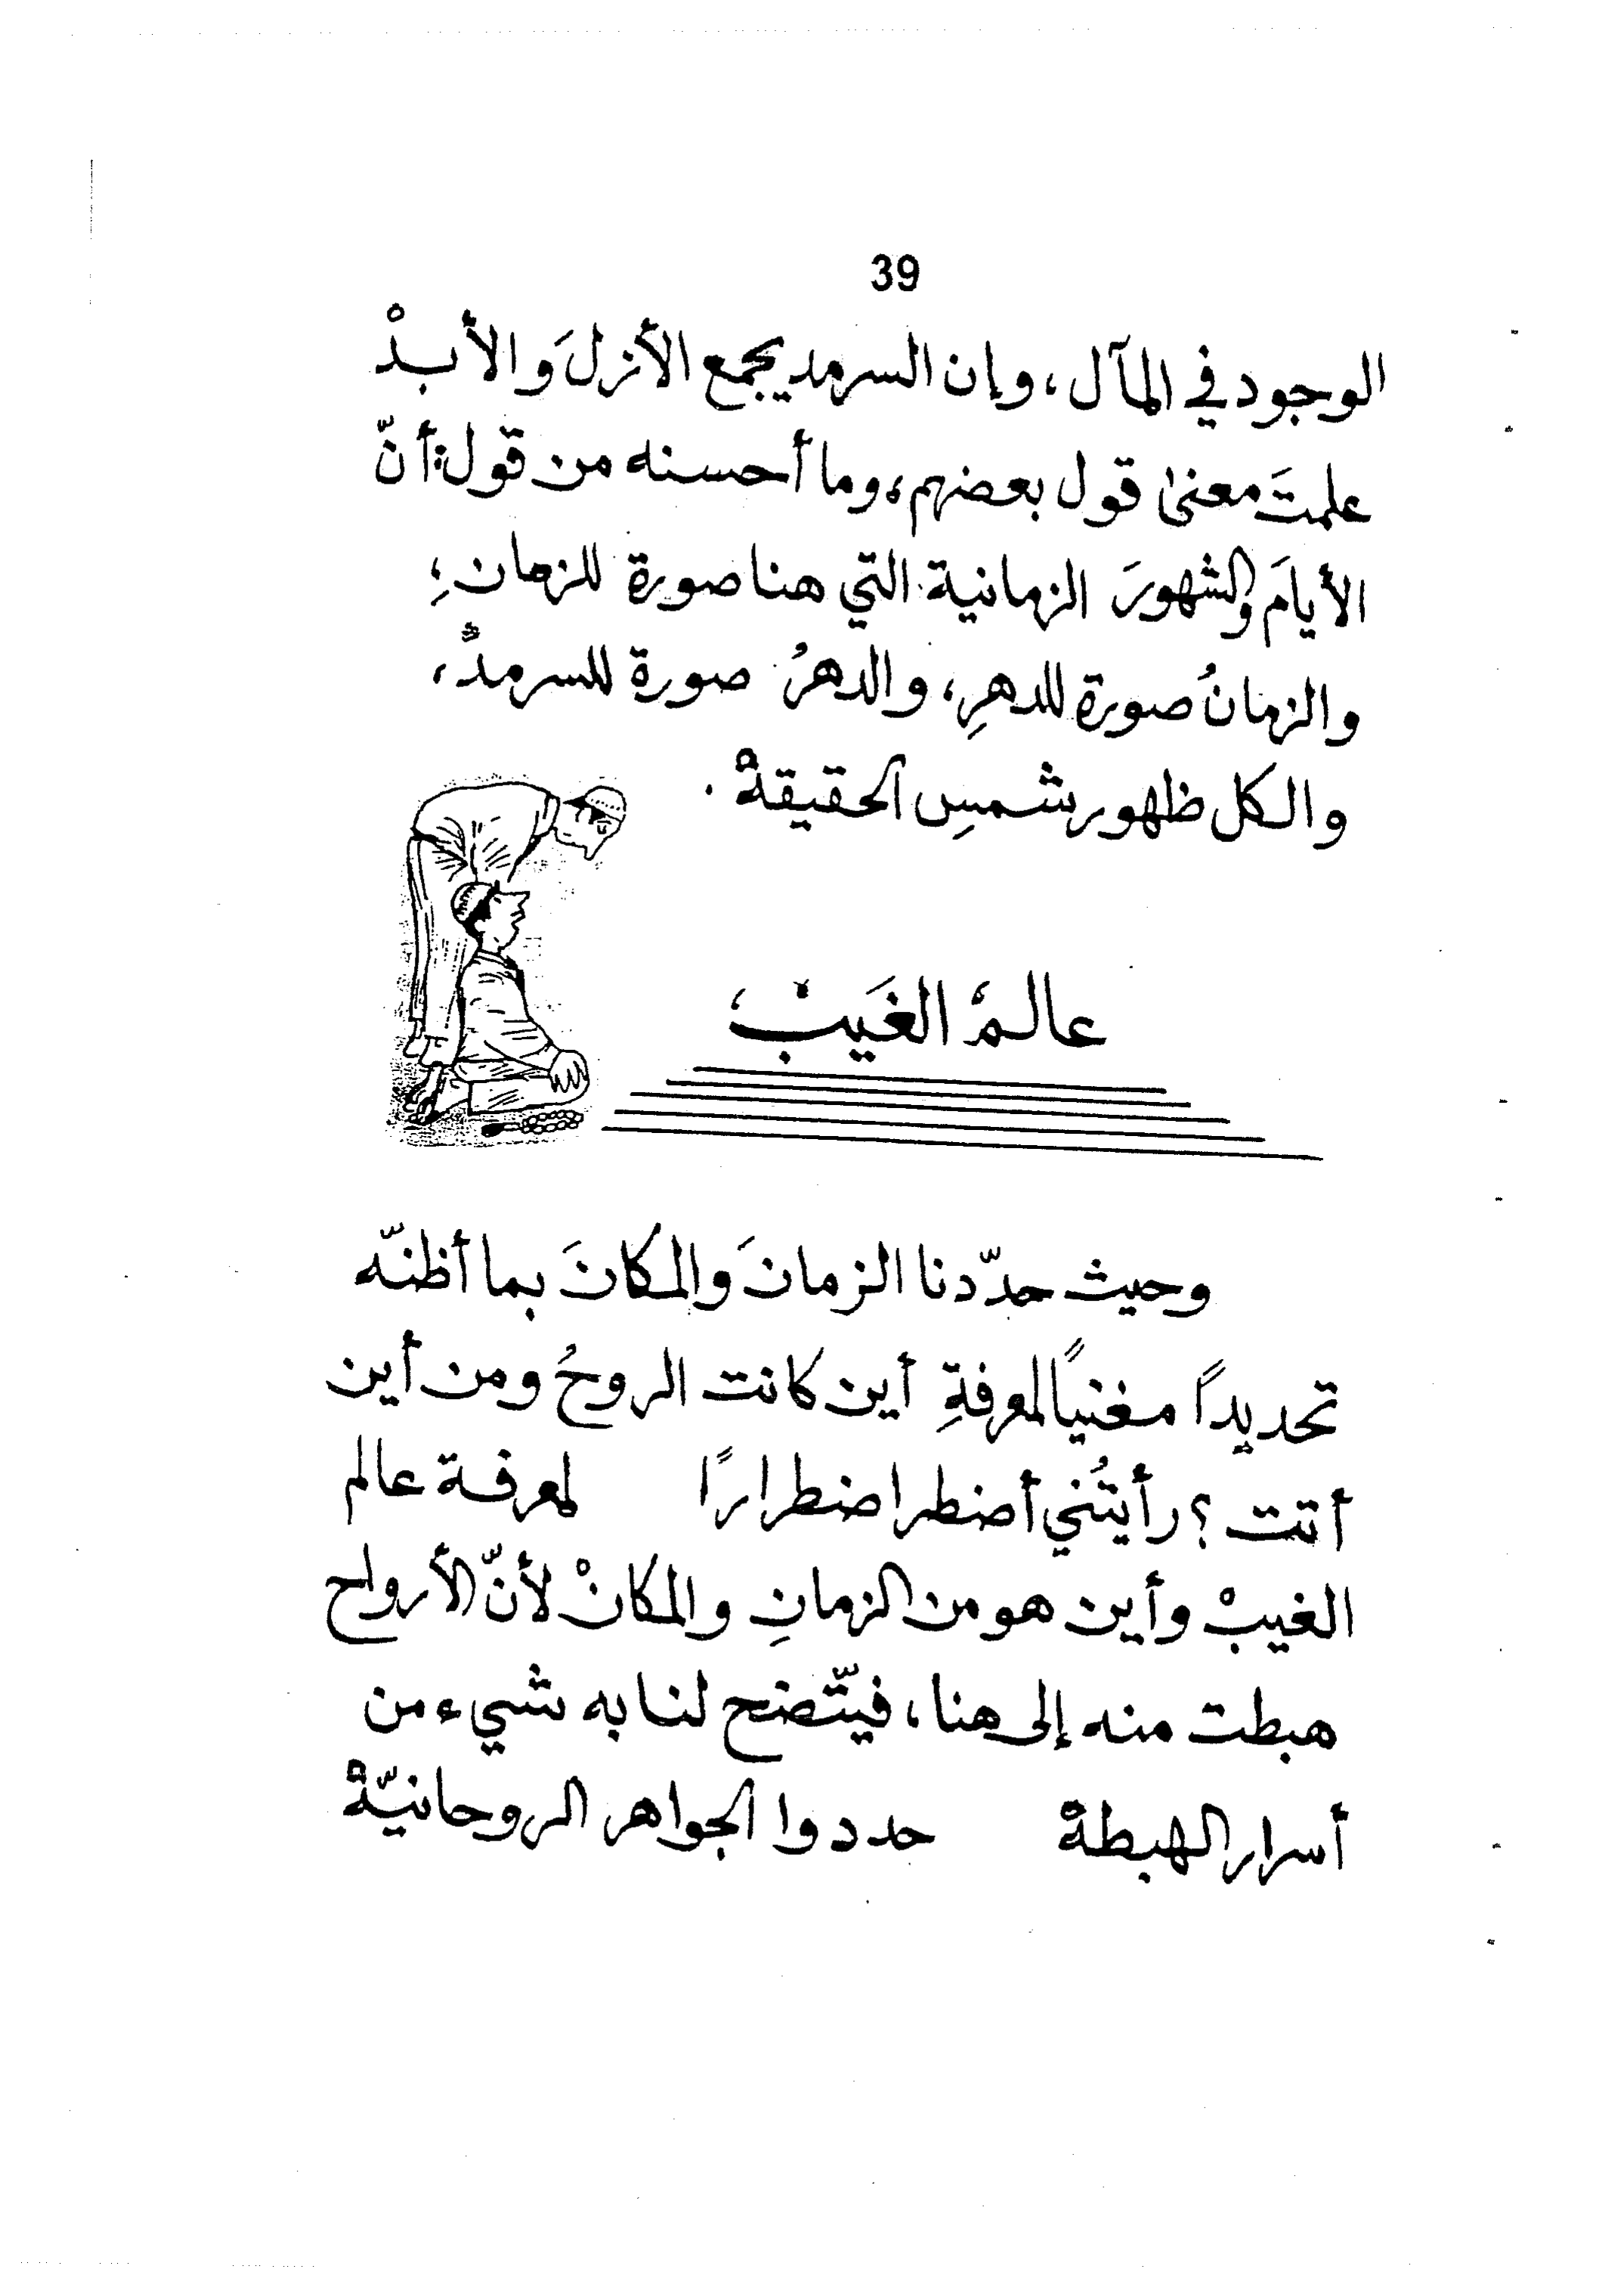 39
الوجود في المآل، وإن السرمد يجمع الأزلَ والأبدْ
علمتَ معنىٰ قول بعضهم، وما أحسنه من قول: أنّ
الأيامَ والشهورَ الزمانية التي هنا صورة للزمانِ؛
والزمانُ صورة للدهرِ، والدهرُ صورة للسرمدْ،
والكل ظهور شمسِ الحقيقةْ.
عالمْ الغَيبْ
وحيث حدّدنا الزمانَ والمكانَ بما أظنّه
تحديداً مغنياً لمعرفةِ أين كانت الروحُ ومن أين
أتت؟ رأيتُني أضطر اضطرارًا لمعرفة عالم
الغيبْ وأين هو من الزمانِ والمكانْ لأنّ الأرواح
هبطت منه إلى هنا، فيتّضح لنا به شيء من
أسرار الهبطةْ حددوا الجواهر الروحانيّةْ